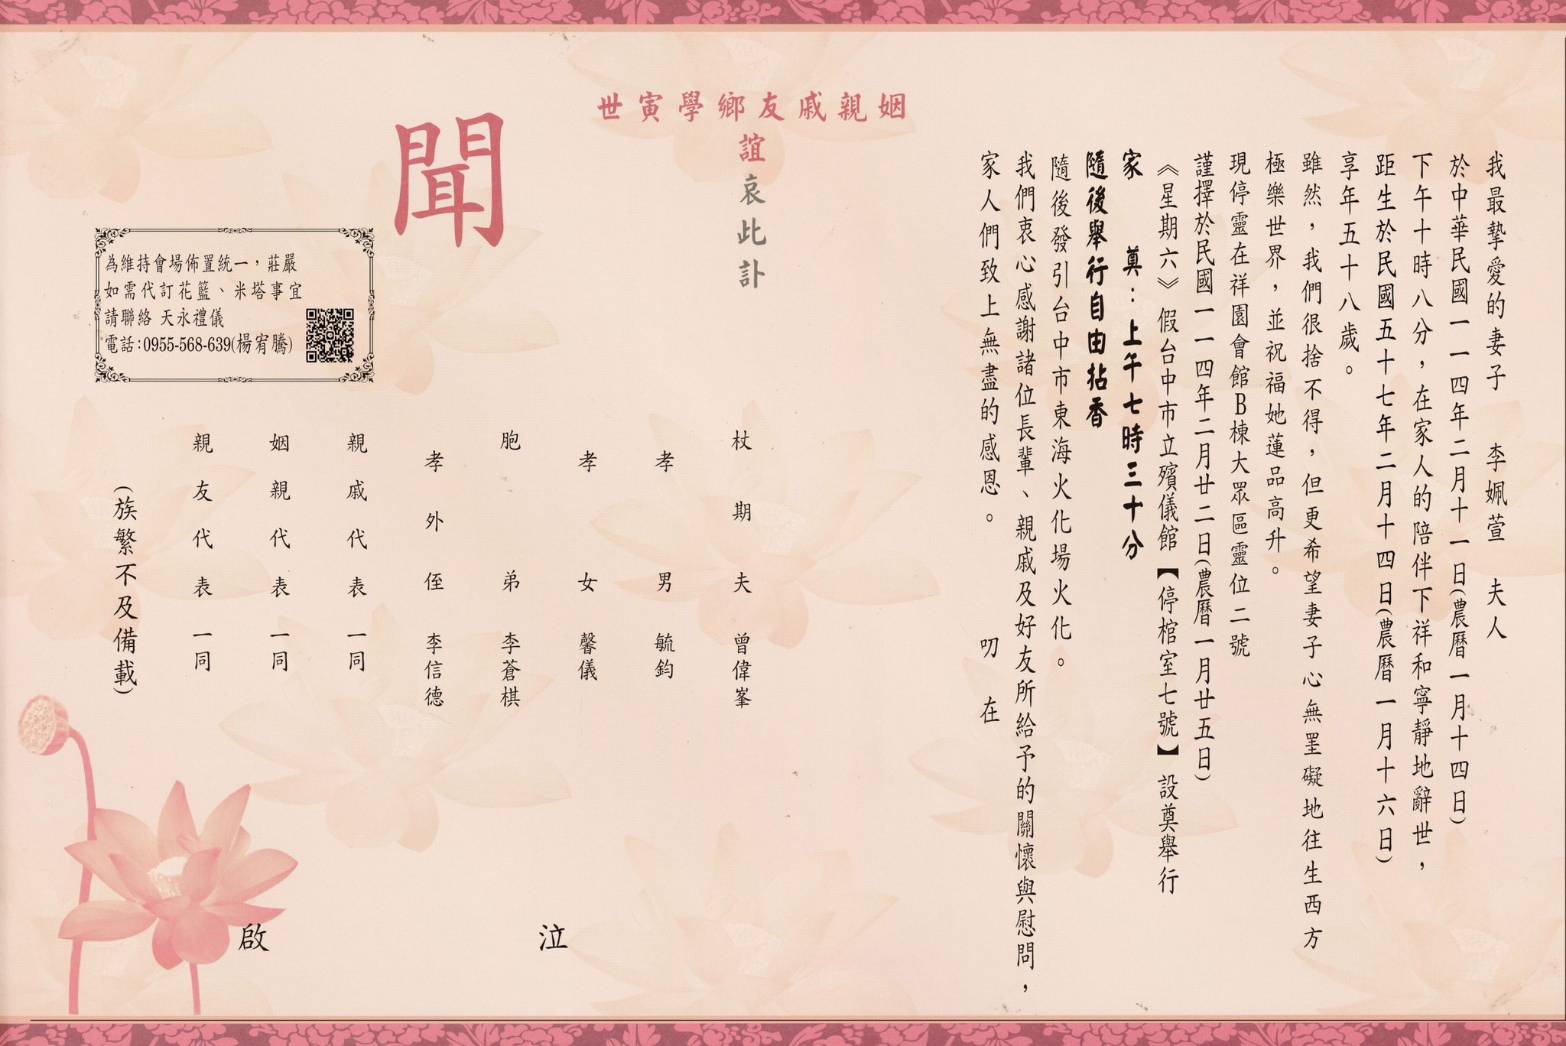 我最摯愛的妻子 李姵萱 夫人
於中華民國一一四年二月十一日(農曆一月十四日)
下午十時八分，在家人的陪伴下祥和寧靜地辭世，
距生於民國五十七年二月十四日(農曆一月十六日)
享年五十八歲。
雖然，我們很捨不得，但更希望妻子心無罣礙地往生西方
極樂世界，並祝福她蓮品高升。
現停靈在祥園會館B棟大眾區靈位二號
謹擇於民國一一四年二月廿二日(農曆一月廿五日)
《星期六》假台中市立殯儀館【(停棺室七號)】設奠舉行
家 奠：上午七時三十分
隨後舉行自由拈香
隨後發引台中市東海火化場火化。
我們衷心感謝諸位長輩、親戚及好友所給予的關懷與慰問，
家人們致上無盡的感恩。 叨 在
姻親戚友鄉學寅世
誼哀此訃
聞
杖期夫 曾偉峯
孝男 毓鈞
孝女 馨儀
胞弟 李蒼棋
孝外侄 李信德
泣
親戚代表一同
姻親代表一同
親友代表一同
(族繁不及備載)
啟
為維持會場佈置統一，莊嚴
如需代訂花籃、米塔事宜
請聯絡 天永禮儀
電話:0955-568-639(楊宥騰)